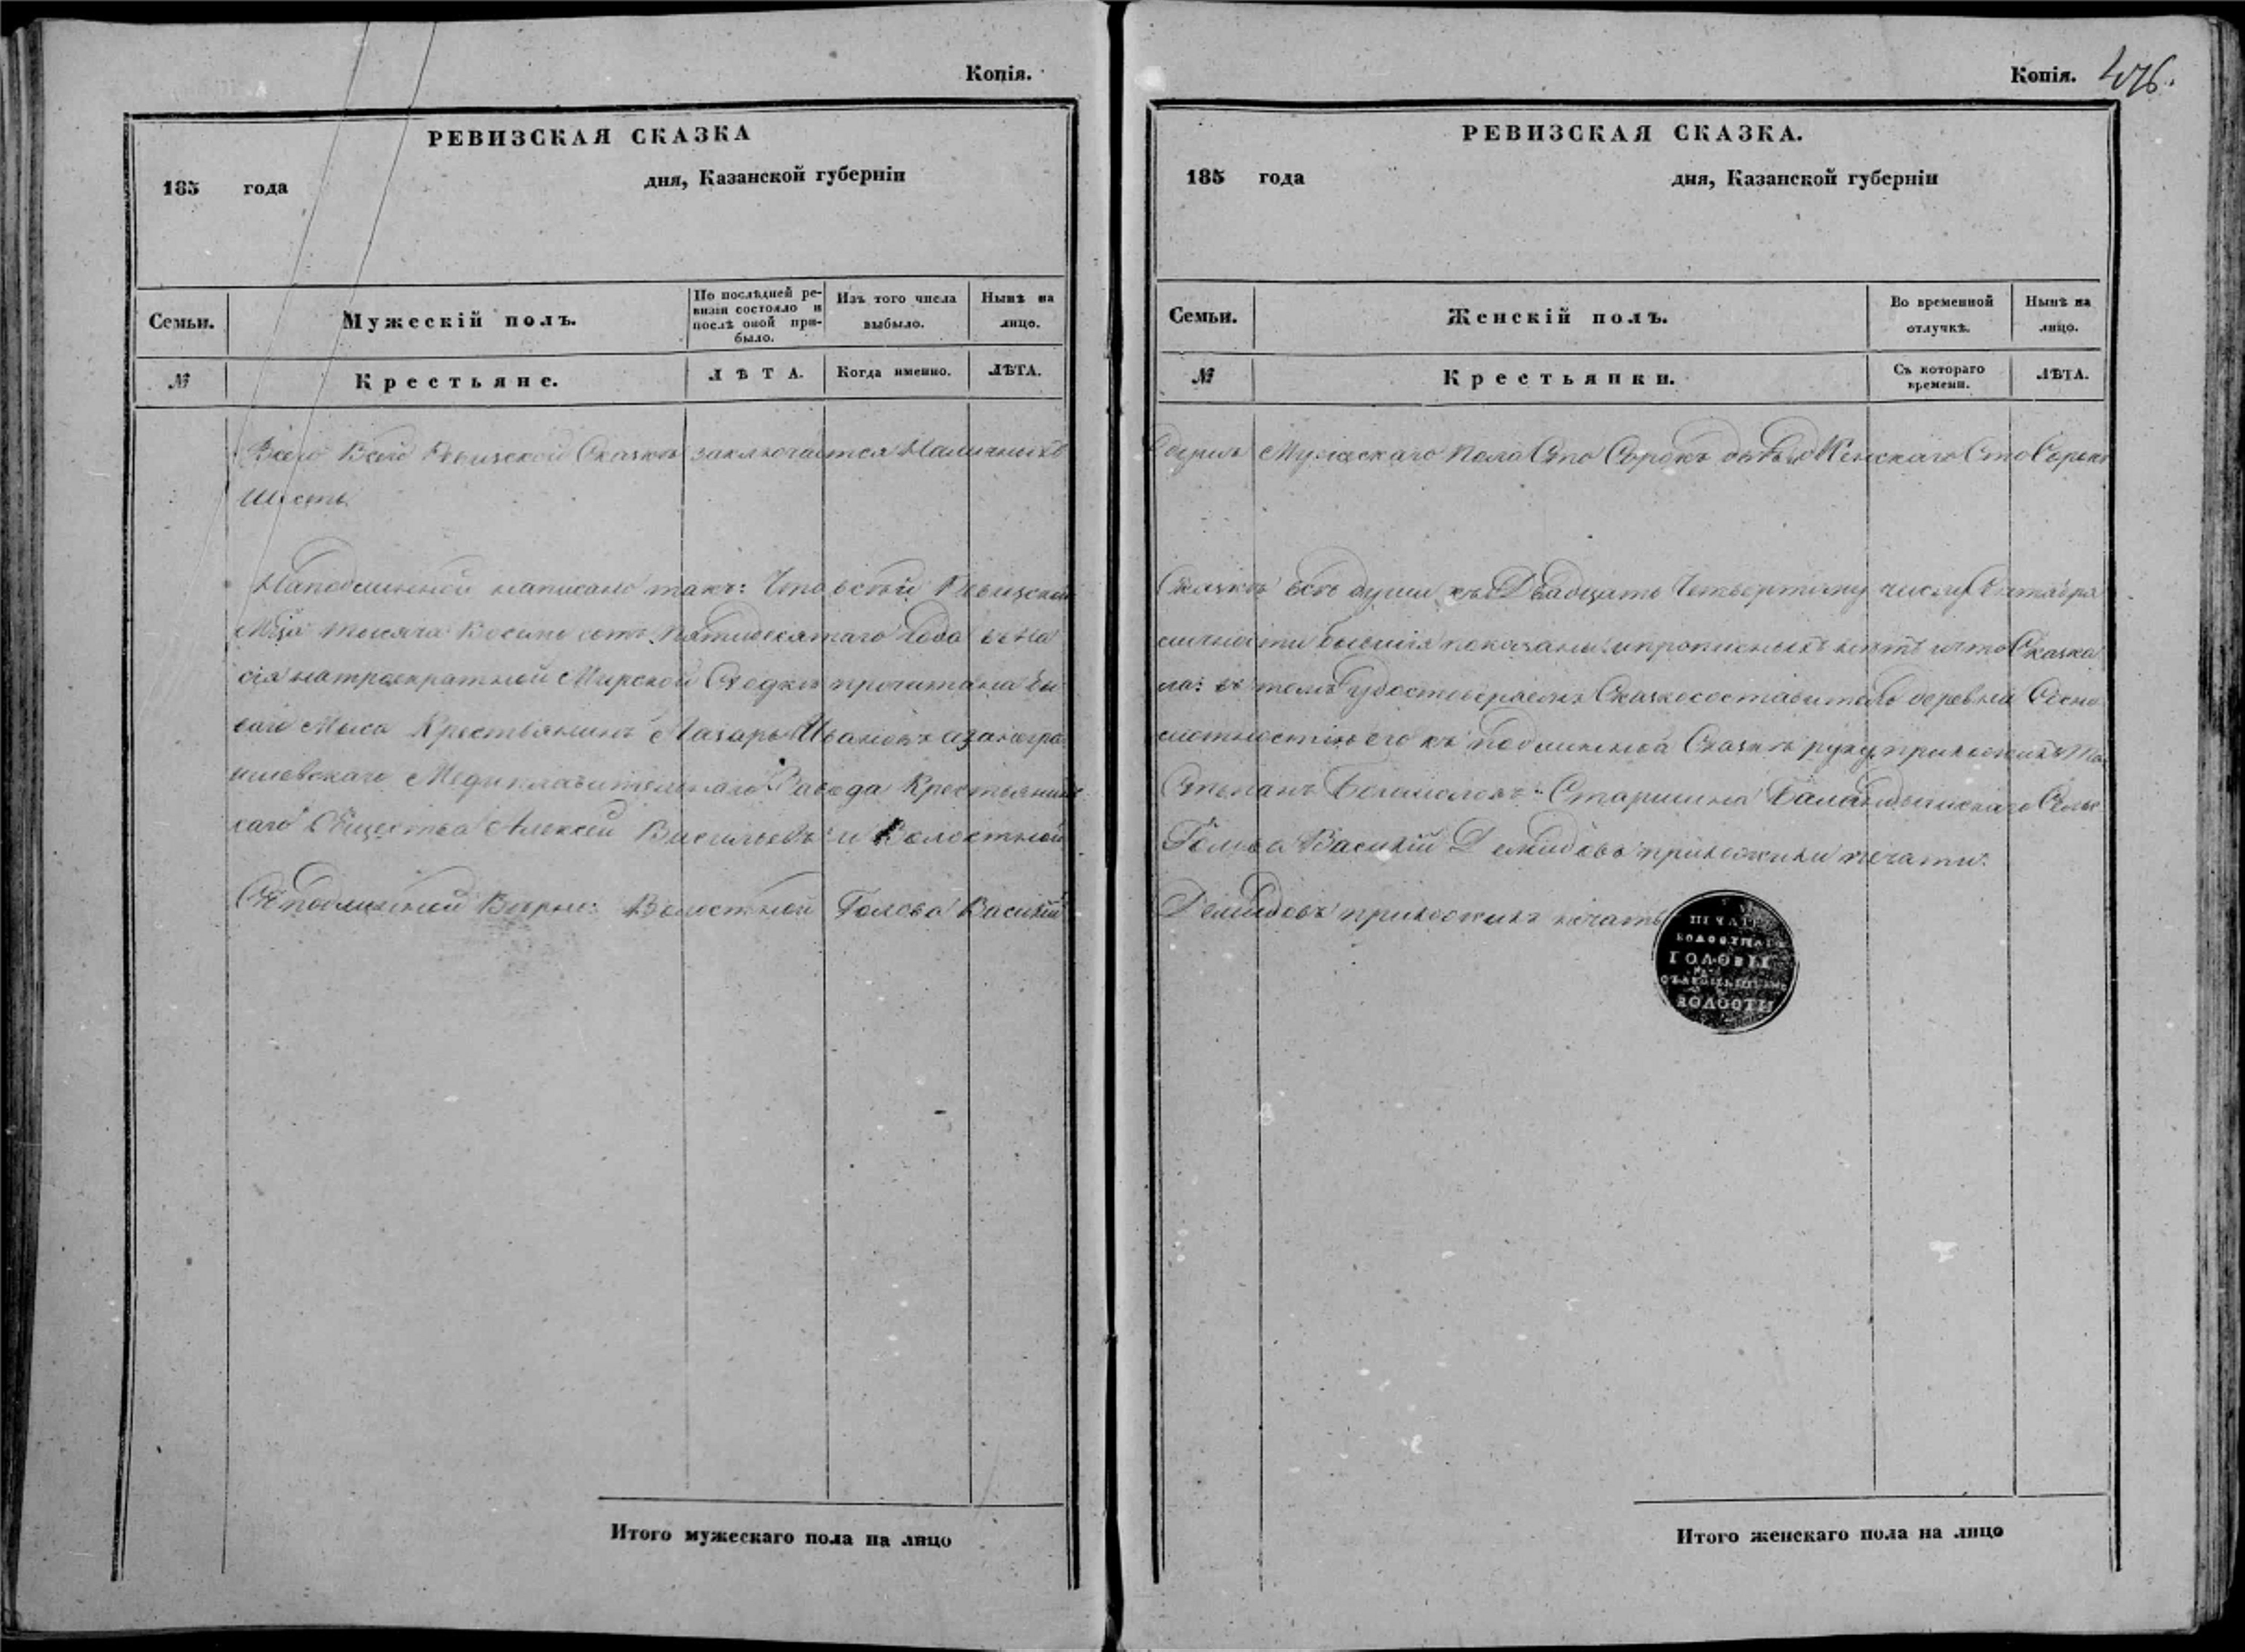 Копія.
РЕВИЗСКАЯ СКАЗКА
185 года дня, Казанской губерніи
Семьи.
Мужескій полъ.
По послѣдней ре-
визіи состояло и
послѣ оной при-
было.
Изъ того числа
выбыло.
Нынѣ на
лицо.
№
Крестьяне.
ЛѢТА.
Когда именно.
ЛѢТА.
Всего Всей Ревизской Сказкѣ заключается Наличныхъ
Шесть
Наподлинной написано такъ: Что въ сей Ревизской
Мца тысяча Восемь сотъ пятидесятаго Года въ На
сія натроекратной Мирской Сходкѣ прочитана бы
ваго Мыса Крестьянинъ Лазарь Ивановъ азанегра
шевскаго Медиплавительнаго Завода Крестьянинъ
каго Общества Алексей Васильевъ и Волостной
Съ подлинной Верно: Волостной Голова Василій
Итого мужескаго пола на лицо
Копія. 476.
РЕВИЗСКАЯ СКАЗКА.
185 года дня, Казанской губерніи
Семьи.
Женскій полъ.
Во временной
отлучкѣ.
Нынѣ на
лицо.
№
Крестьянки.
Съ котораго
времени.
ЛѢТА.
душъ Мужескаго Пола Сто Сорокъ Женскаго Сто Сорокъ
Сказкѣ всѣ души къ Двадцать Четвертому числу Октября
показаны и прописныхъ нетъ и что Сказка
ла: въ томъ удостоверяемъ Сказкосоставитель деревни Сосно
его къ подлинной Сказкѣ руку приложилъ
Степанъ Богомоловъ Старшина Сельс
Голова Василій Демидовъ приложили печати.
Демидовъ приложилъ печать
ПЕЧАТЬ
ВОЛОСТНАГО
ГОЛОВЫ
ВОЛОСТИ
Итого женскаго пола на лицо